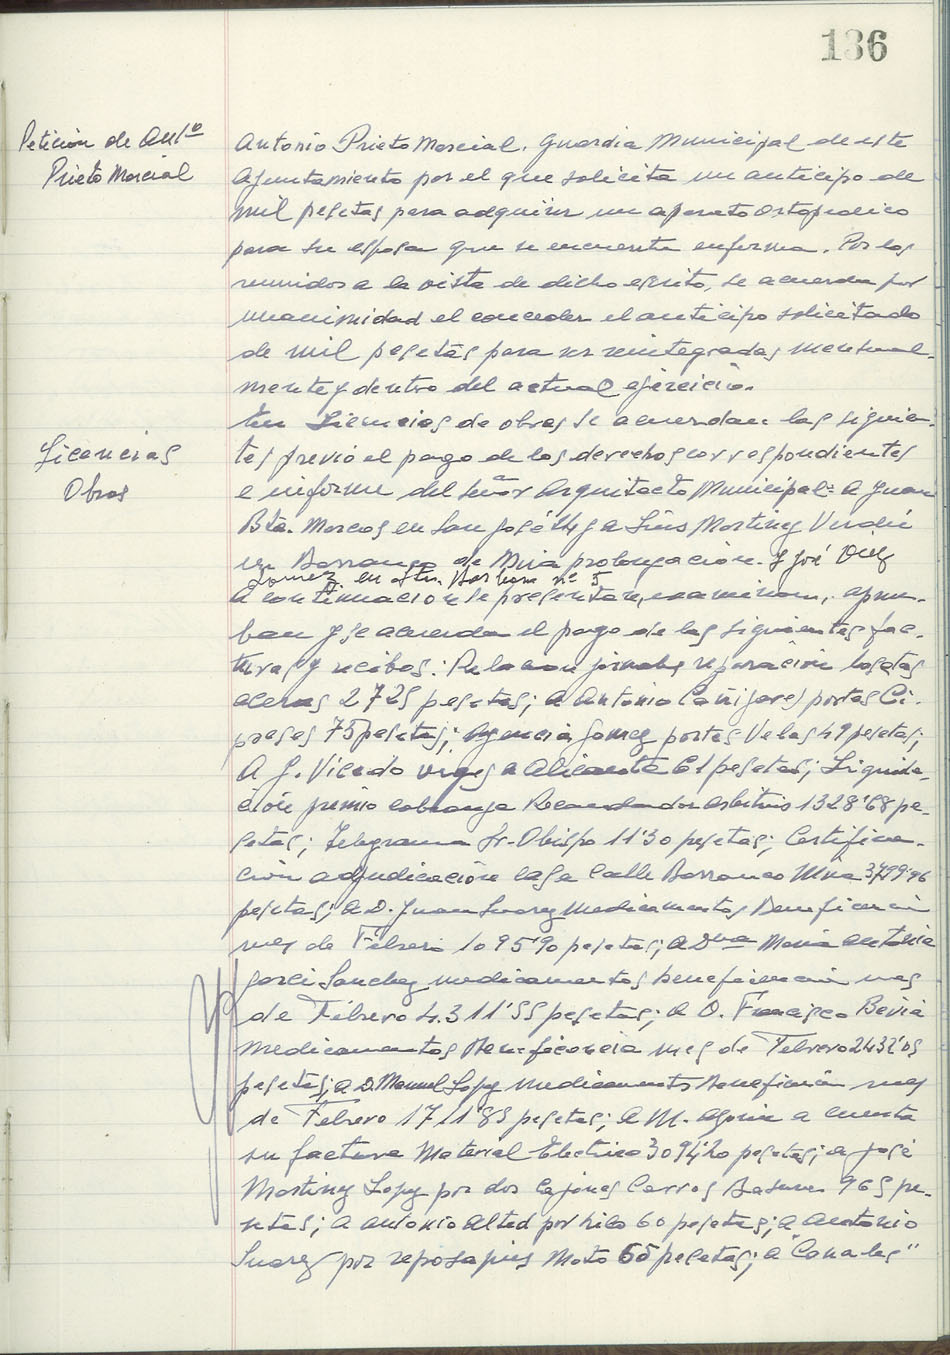 136
Petición de Antº
Prieto Marcial
Antonio Prieto Marcial. Guardia Municipal de este
Ajuntamiento por el que solicita un anticipo de
mil pesetas para adquirir un aparato ortopedico
para su esposa que se encuentra enferma. Por los
reunidos a la vista de dicho escrito, se acuerda por
unanimidad el conceder el anticipo solicitado
de mil pesetas para ser reintegradas mensual-
mente y dentro del actual ejercicio.
Licencias
Obras
En Licencias de obras se acuerdan las siguien-
tes previo el pago de los derechos correspondientes
e informe del señor Arquitecto Municipal: a Juan
Bta. Marcos en San José 14 y a Luis Martinez Verdú
en Barranco de prolongación. Y José Diez
Gomez en Sta. Barbara nº 5
A continuación se presentan, examinan, aprue-
ban y se acuerda el pago de las siguientes fac-
turas y recibos: Relacion jornales reparación
aceras 2725 pesetas; a Antonio Cañizares portes Ci-
preses 75 pesetas; Agencia Gomez portes Velas 49 pesetas;
A J. Vicedo viajes a Alicante 61 pesetas; Liquida-
ción premio cobranza Recaudador Arbitrios 1328'68 pe-
setas; Telegrama Sr. Obispo 11'30 pesetas; Certifica-
ción adjudicación casa Calle Barranco 3799'96
pesetas; a D. Juan Suarez Medicamentos Beneficencia
mes de Febrero 1095'90 pesetas; a Dña Maria Antonia
Sanchez medicamentos beneficencia mes
de Febrero 4.311'55 pesetas; a D. Francisco Beviá
Medicamentos Beneficencia mes de Febrero 2432'05
pesetas; a D. Manuel Lopez medicamentos Beneficencia mes
de Febrero 1711'83 pesetas; a M. a cuenta
su factura Material Electrico 3094'20 pesetas; a José
Martinez Lopez por dos cajones Carros Basura 965 pe-
setas; a Antonio Alted por hilo 60 pesetas; a Antonio
Suarez por reposapies Moto 65 pesetas; a "Canales"